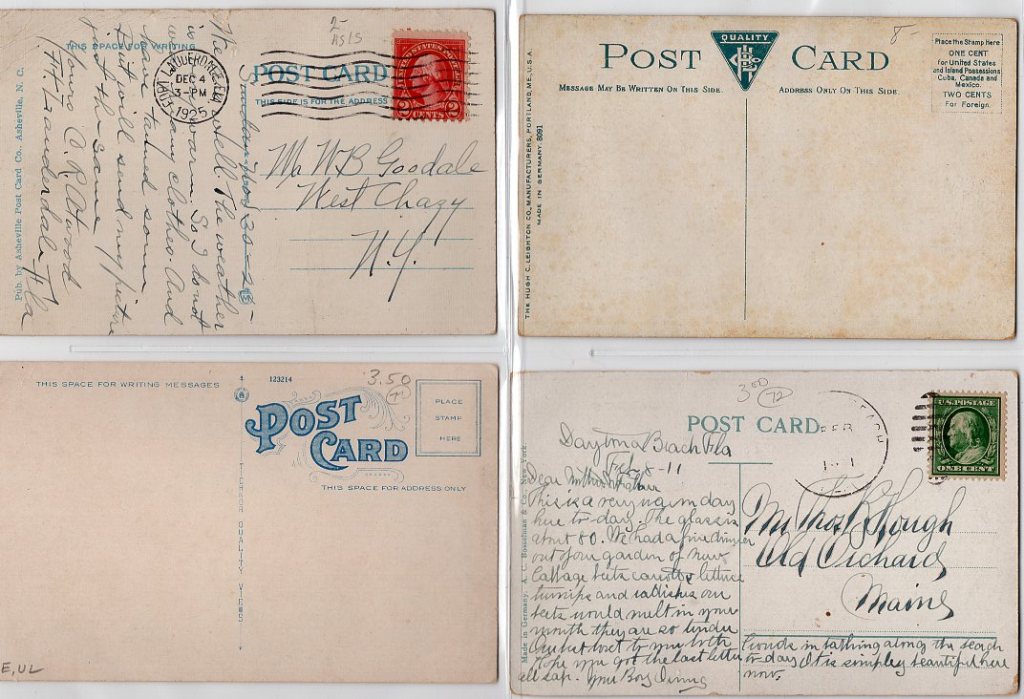 THIS SPACE FOR WRITING
POST CARD
THIS SIDE IS FOR THE ADDRESS
2-
AS IS
LAUDERDALE, FLA.
DEC 4
3-PM
1925
UNITED STATES POSTAGE
2 CENTS 2
Sunday Nov 30-25-
The well. The weather
is warm So I do not
any clothes. And
have tanned some
But will send my picture
just the same
Yours C. R. Atwood
Ft Lauderdale Fla
Mr W B Goodale
West Chazy
N.Y.
Pub. by Asheville Post Card Co., Asheville, N. C.
POST CARD
QUALITY
8-
MESSAGE MAY BE WRITTEN ON THIS SIDE.
ADDRESS ONLY ON THIS SIDE.
Place the Stamp Here
ONE CENT
for United States
and Island Possessions
Cuba, Canada and
Mexico.
TWO CENTS
For Foreign.
THE HUGH C. LEIGHTON CO., MANUFACTURERS, PORTLAND, ME., U.S.A.
MADE IN GERMANY. 8091
THIS SPACE FOR WRITING MESSAGES
123214
3.50
POST
CARD
PLACE
STAMP
HERE
THIS SPACE FOR ADDRESS ONLY
QUALITY VIEWS
E, UL
3.00
72
POST CARD
FEB
U.S. POSTAGE
ONE CENT
Daytona Beach Fla
Feb 8-11
Dear Mother
This is a very warm day
here to-day. The glass is
about 80. We had a fine dinner
out of our garden of new
Cabbage beets carrots lettuce
turnips and radishes our
beets would melt in your
mouth they are so tender
hope you got the last letter
all sap. Your Boy
Crowds in bathing along the beach
to-day. It is simpley beautiful here
now.
Mr Thos B Hough
Old Orchard
Maine
Made in Germany. A. C. Bosselman & Co., New York.